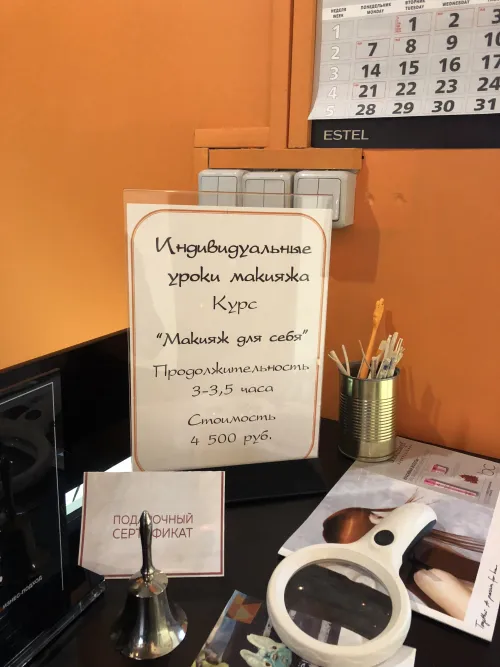 НЕДЕЛИ ПОНЕДЕЛЬНИК ВТОРНИК СРЕДА
WEEK MONDAY TUESDAY WEDNESDAY
1 1 2 3
2 7 8 9 10
3 14 15 16 17
4 21 22 23 24
5 28 29 30 31
ESTEL
Индивидуальные
уроки макияжа
Курс
"Макияж для себя"
Продолжительность
3-3,5 часа
Стоимость
4 500 руб.
ПОДАРОЧНЫЙ
СЕРТИФИКАТ